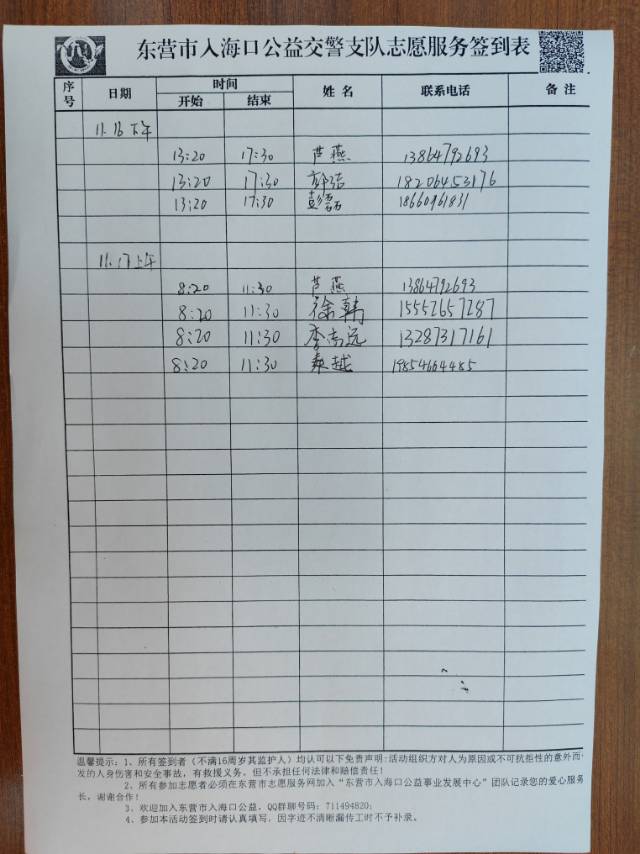 东营市入海口公益交警支队志愿服务签到表
序号 日期 时间 姓名 联系电话 备注
开始 结束
11.16 下午
13:20 17:30 芦燕 13864792693
13:20 17:30 郭洁 18206453176
13:20 17:30 彭磊 18660961831
11.17 上午
8:20 11:30 芦燕 13864792693
8:20 11:30 徐韩 15552657287
8:20 11:30 李志远 13287317161
8:20 11:30 秦越 19854664485
温馨提示:1、所有签到者(不满16周岁其监护人)均认可以下免责声明:活动组织方对人为原因或不可抗拒性的意外而
发的人身伤害和安全事故,有救援义务,但不承担任何法律和赔偿责任!
2、所有参加志愿者必须在东营市志愿服务网加入“东营市入海口公益事业发展中心”团队记录您的爱心服务
长,谢谢合作!
3、欢迎加入东营市入海口公益,QQ群聊号码:711494820;
4、参加本活动签到时请认真填写,因字迹不清晰漏传工时不予补录。